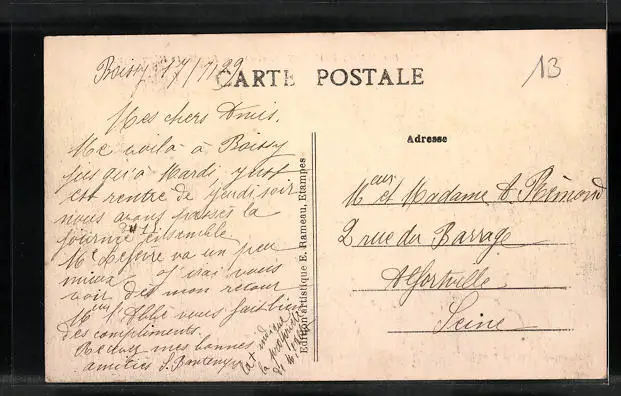 Boissy 17/7/29
CARTE POSTALE
13
Mes chers Amis.
Me voilà à Boissy
jusqu'à Mardi, Just
est rentré de Jeudi soir
nous avons passés la
journée d'hier ensemble
Mr Lefevre va un peu
mieux J'irai vous
voir dès mon retour
Mr l'Abbé vous fait bien
des compliments.
Recevez mes bonnes
amitiés S.
la + indique
la
de
Edition artistique E. Rameau, Etampes
Adresse
Mr et Madame A. Rémond
2 rue du Barrage
Alfortville
Seine